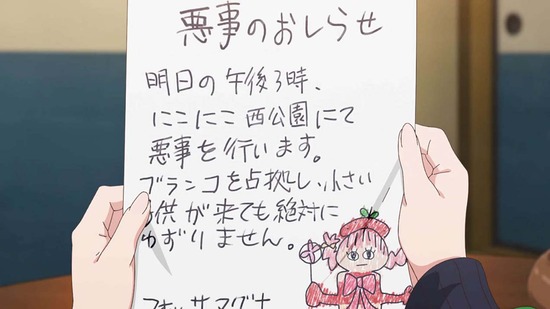 悪事のおしらせ
明日の午後3時、
にこにこ西公園にて
悪事を行います。
ブランコを占拠し、小さい
供が来ても絶対に
ゆずりません。
フォッサマグナ